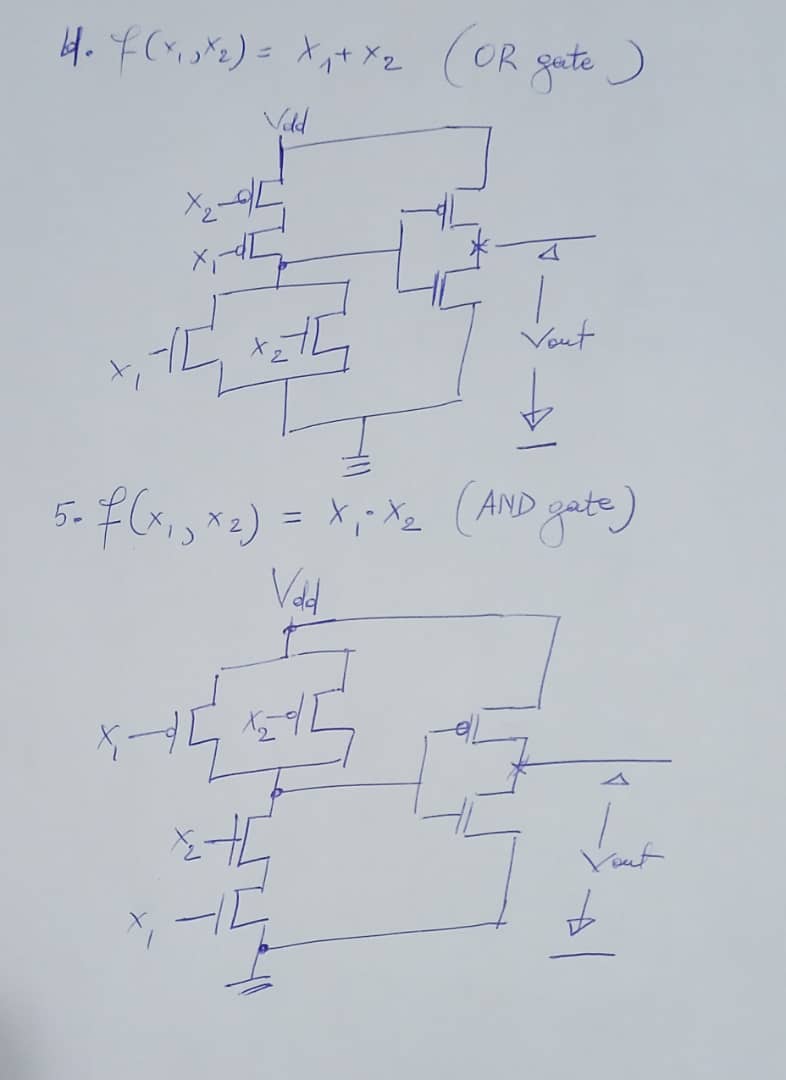 4. f(x₁,x₂) = x₁+x₂ (OR gate)
Vdd
x₂
x₁
x₁
x₂
Vout
5. f(x₁,x₂) = x₁·x₂ (AND gate)
Vdd
x₁
x₂
x₂
x₁
Vout